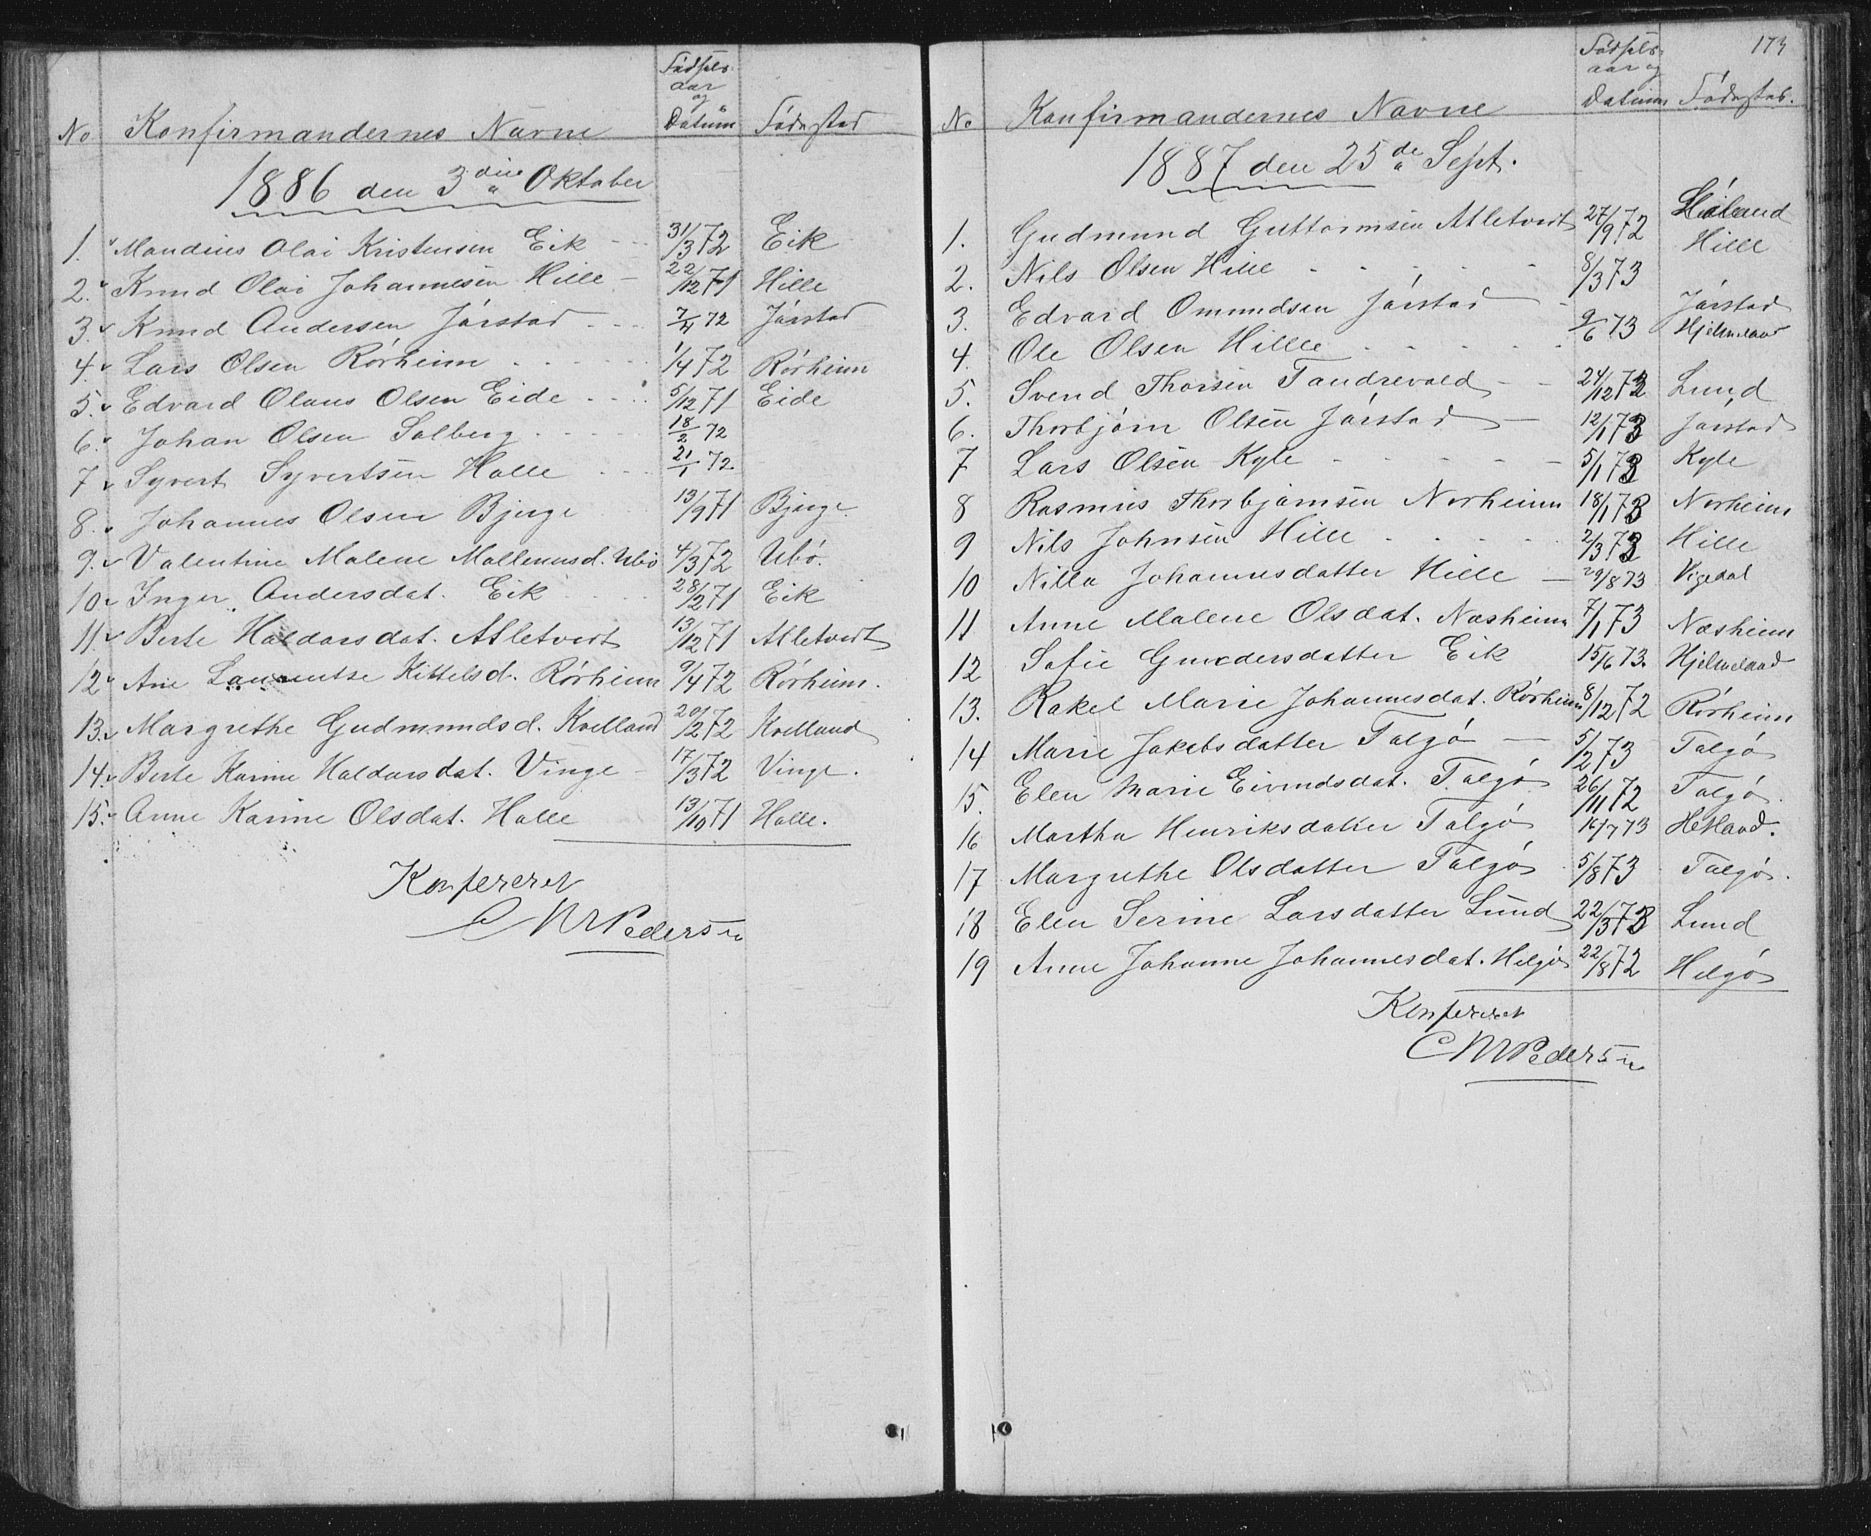 No Konfirmandernes Navne Fødsels-aar og Datum Fødested
1886 den 3die Oktober
1. Mandius Olai Kristensen Eik 31/3 72 Eik
2. Knud Olai Johannesen Hille 22/12 71 Hille
3. Knud Andersen Jørstad 7/4 72 Jørstad
4. Lars Olsen Rørheim 1/4 72 Rørheim
5. Edvard Olaus Olsen Eide 5/12 71 Eide
6. Johan Olsen Solberg 18/2 72
7 Syvert Syvertsen Halle 21/1 72
8. Johannes Olsen Bjerge 13/9 71 Bjerge.
9. Valentine Malene Mallenusd. Ubø 4/3 72 Ubø.
10. Inger Andersdat. Eik 28/12 71 Eik
11. Berte Haldorsdat. Atletveit 13/12 71 Atletveit
12. Ane Laurentse Kittelsd. Rørheim 9/4 72 Rørheim.
13. Margrethe Gudmundsd. Kvelland 20/2 72 Kvelland
14. Berte Karine Haldorsdat. Vinge 17/3 72 Vinge.
15. Anne Karine Olsdat. Halle 13/10 71 Halle.
Konfereret
C M Pedersen
173
No Konfirmandernes Navne Fødsels-aar og Datum Fødested.
1887 den 25de Sept.
1. Gudmund Guttormsen Atletveit 27/9 72
2. Nils Olsen Hille 8/3 73 Hille
3. Edvard Ommundsen Jørstad Jørstad
4. Ole Olsen Hille 9/6 73 Hjelmeland
5. Svend Thorsen Tandrevold 24/12 72 Lund
6. Thorbjørn Olsen Jørstad 12/1 73 Jørstad
7 Lars Olsen Kyle 5/1 73 Kyle
8 Rasmus Thorbjørnsen Norheim 18/1 73 Norheim
9 Nils Johnsen Hille 2/3 73 Hille
10 Nilla Johannesdatter Hille 29/8 73 Vigedal
11 Anne Malene Olsdat. Næsheim 7/1 73 Næsheim
12 Sofie Gunedersdatter Eik 15/6 73. Hjelmeland
13. Rakel Marie Johannesdat. Rørheim 8/12 72 Rørheim
14 Marie Jakobsdatter Talgø 5/2 73 Talgø
15. Elen Marie Eivindsdat. Talgø 26/11 72 Talgø.
16 Martha Henriksdatter Talgø 16/7 73 Hetland.
17 Margrethe Olsdatter Talgø 5/8 73 Talgø.
18 Elen Serine Larsdatter Lund 22/3 73 Lund
19 Anne Johanne Johannesdat. Helgø 22/8 72 Helgø
Konfereret
C M Pedersen